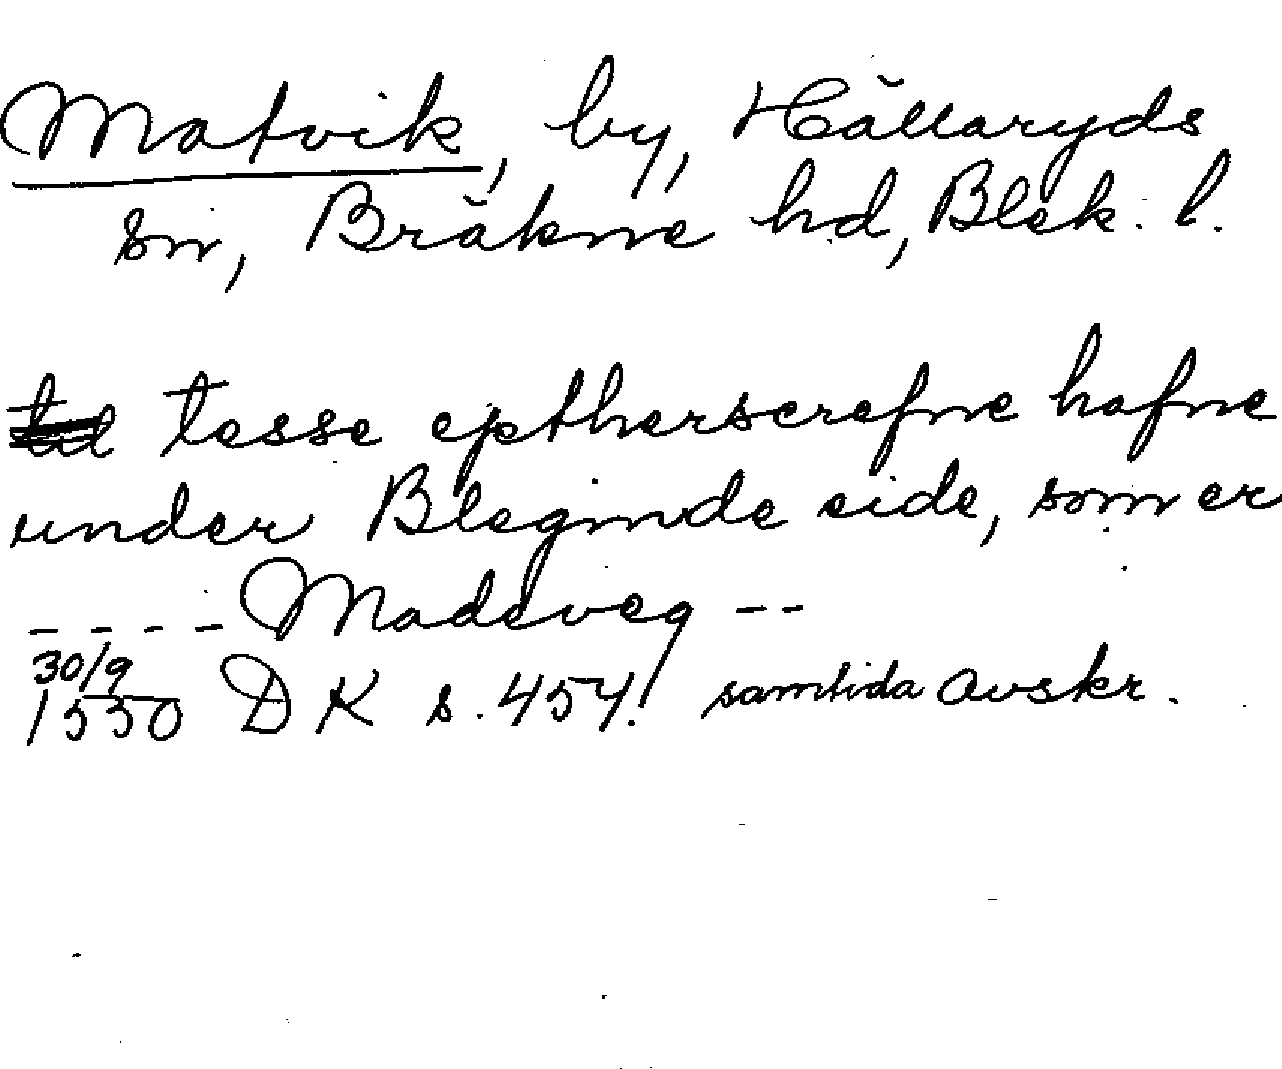 Matvik, by, Hällaryds
sn, Bräkne hd, Blek. l.
tesse eptherscrefne hafne
under Bleginde side, som er
- - - - Madeveg - -
30/9
1550 DK s. 454. samtida avskr.